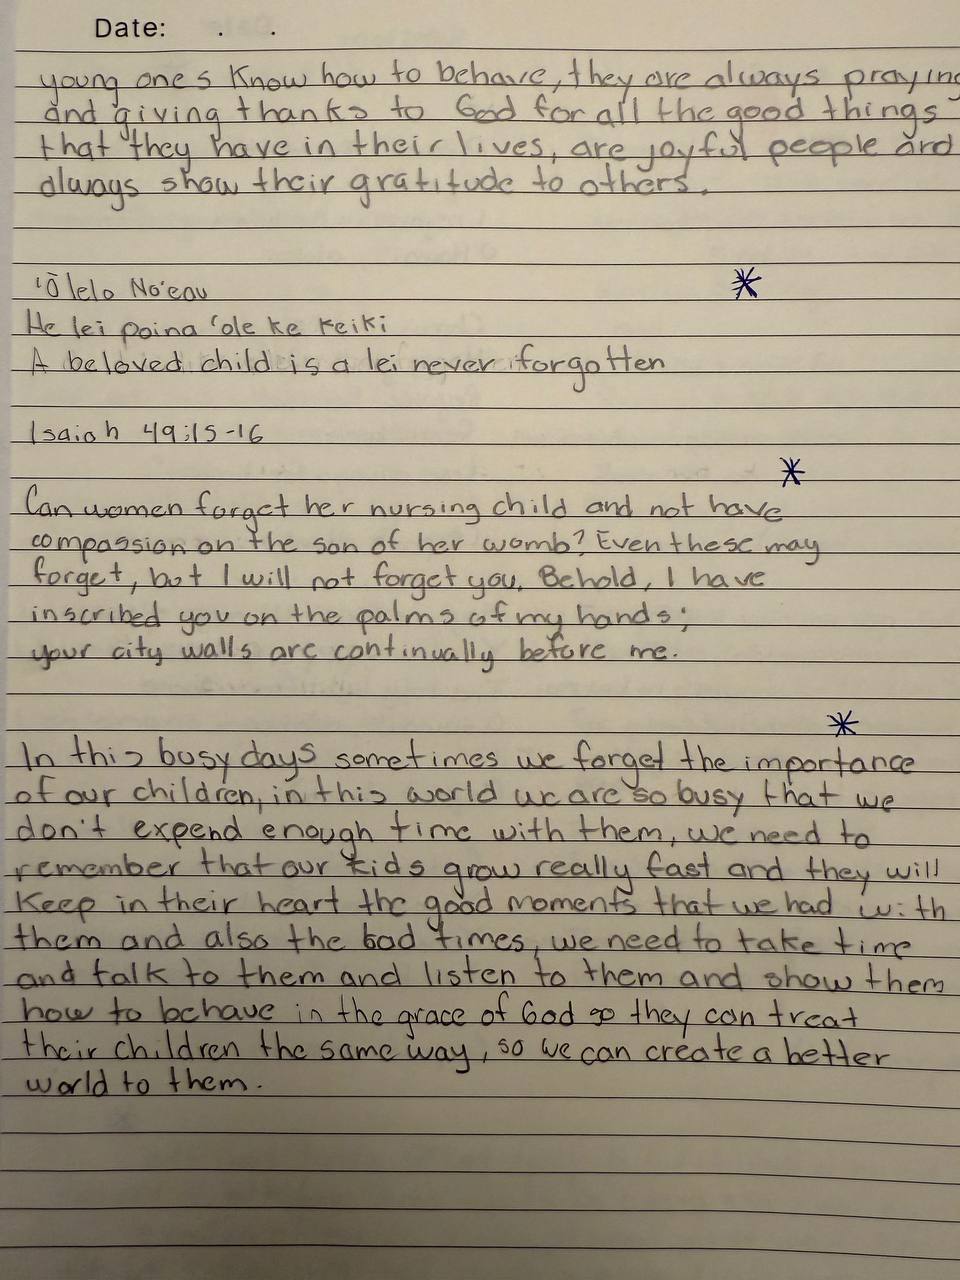 Date: . .
young ones know how to behave, they are always praying
and giving thanks to God for all the good things
that they have in their lives, are joyful people and
always show their gratitude to others.
'Ōlelo No'eau
*
He lei poina 'ole ke keiki
A beloved child is a lei never forgotten
Isaiah 49:15-16
*
Can women forget her nursing child and not have
compassion on the son of her womb? Even these may
forget, but I will not forget you. Behold, I have
inscribed you on the palms of my hands;
your city walls are continually before me.
*
In this busy days sometimes we forget the importance
of our children, in this world we are so busy that we
don't expend enough time with them, we need to
remember that our kids grow really fast and they will
Keep in their heart the good moments that we had with
them and also the bad times, we need to take time
and talk to them and listen to them and show them
how to behave in the grace of God so they can treat
their children the same way, so we can create a better
world to them.